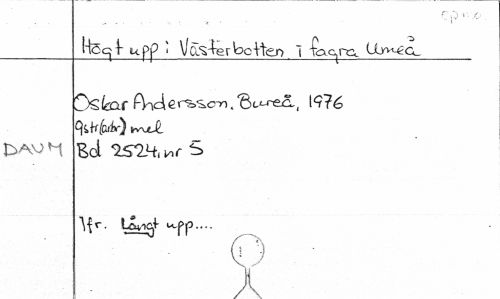 Högt upp i Västerbotten i fagra Umeå
Oskar Andersson, Bureå, 1976
9str(arbr) mel
DAUM Bd 2524, nr 5
Jfr. Långt upp....